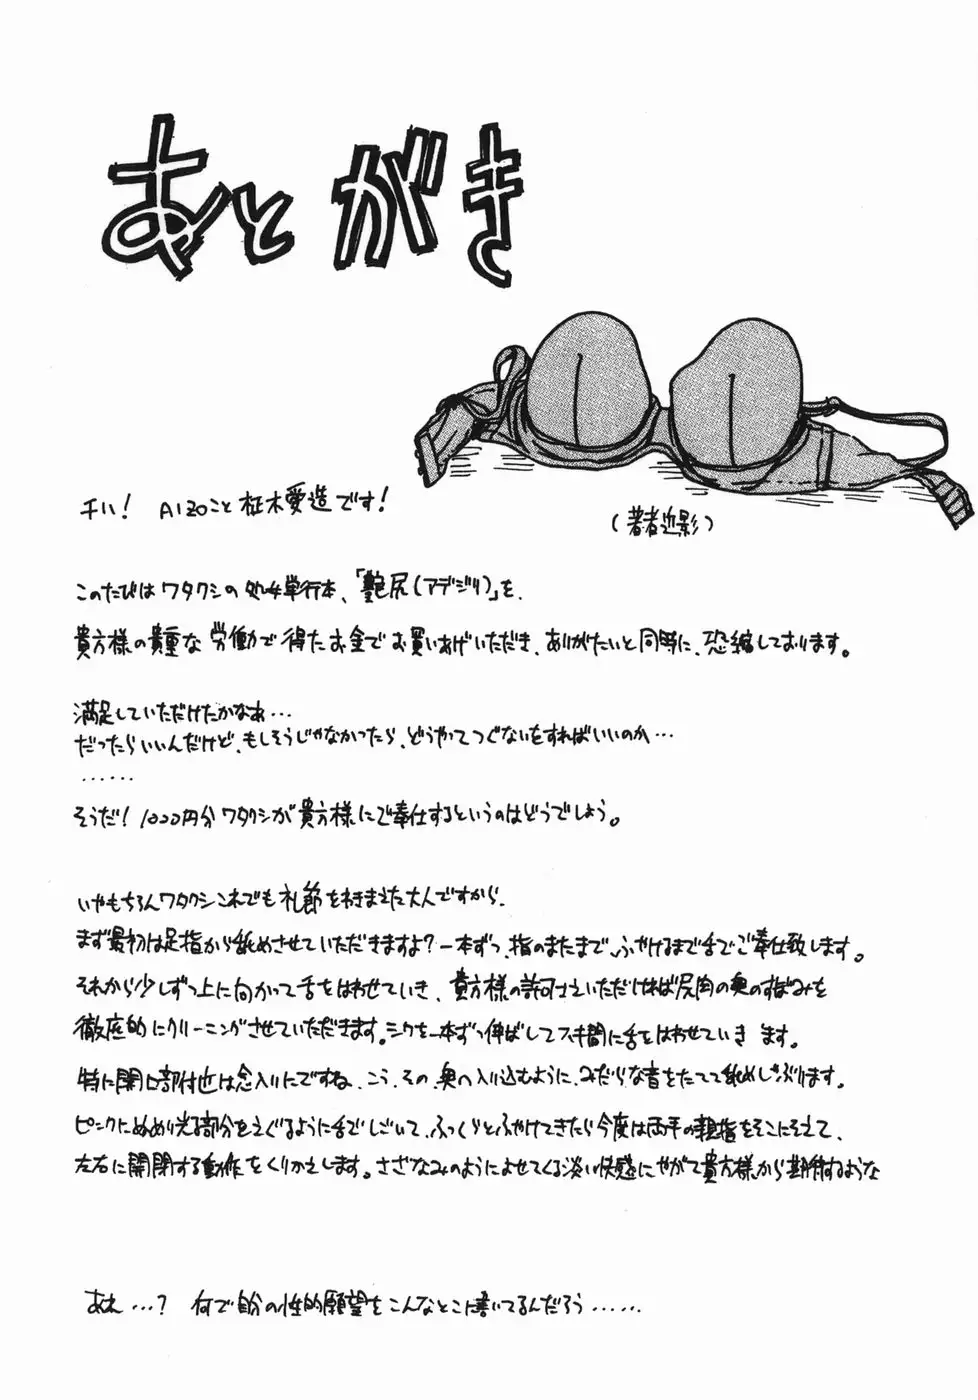 あとがき
(著者近影)
チハ! AIZOこと柾木愛造です!
このたびはワタクシの処女単行本、「艶尻(アデジリ)」を、
貴方様の貴重な労働で得たお金でお買いあげいただき、ありがたいと同時に、恐縮しております。
満足していただけたかなぁ…
だったらいいんだけど、もしそうじゃなかったら、どうやってつぐないをすればいいのか…
……
そうだ! 1000円分ワタクシが貴方様にご奉仕するというのはどうでしよう。
いやもちろんワタクシこれでも礼節をわきまえた大人ですから、
まず最初は足指から舐めさせていただきますよ?一本ずつ、指のまたまで、ふやけるまで舌でご奉仕致します。
それから少しずつ上に向かって舌をはわせていき、貴方様の許可さえいただければ尻肉の奥のすぼみを
徹底的にクリーニングさせていただきます。シワを一本ずつ伸ばしてスキ間に舌をはわせていき ます。
特に開口部付近は念入りにですね、こう、その、奥へ入り込むように、みだらな音をたてて舐めしゃぶります。
ピンクにぬめり光る部分をえぐるように舌でしごいて、ふっくらとふやけてきたら今度は両手の親指をそこにそえて、
左右に開閉する動作をくりかえします。さざなみのようによせてくる淡い快感にやがて貴方様から期待するような
あれ…? 何で自分の性的願望をこんなとこに書いてるんだろう……